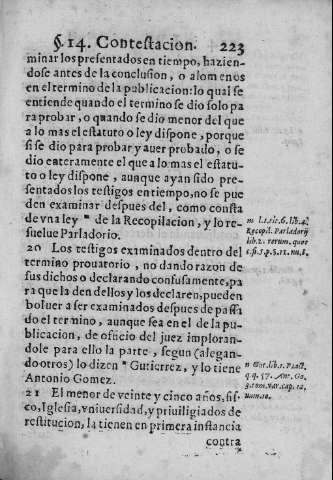 §. 14. Contestacion. 223
minar los presentados en tiempo, hazien-
dose antes de la conclusion, o alomenos
en el termino de la publicacion: lo qual se
entiende quando el termino se dio solo pa
ra probar, o quando se dio menor del que
a lo mas el estatuto o ley dispone, porque
si se dio para probar y auer probado, o se
dio enteramente el que a lo mas el estatu-
to o ley dispone, aunque ayan sido pre-
sentados los testigos en tiempo, no se pue
den examinar despues del, como consta
de vna ley m de la Recopilacion, y lo re-
suelue Parladorio.
m l. 1. tit. 6. lib. 4.
Recopil. Parladorij
lib. 2. rerum. quot
20 Los testigos examinados dentro del
termino prouatorio, no dando razon de
sus dichos o declarando confusamente, pa
ra que la den dellos y los declaren, pueden
boluer a ser examinados despues de passa
do el termino, aunque sea en el de la pu-
blicacion, de oficio del juez imploran-
dole para ello la parte, segun (alegan-
do otros) lo dizen n Gutierrez, y lo tiene
Antonio Gomez.
n Gut. lib. 1. Pract.
q. q. 57. Ant. Go.
3. tom. var. cap. 12.
num. 10.
21 El menor de veinte y cinco años, fis-
co, Iglesia, vniuersidad, y priuiligiados de
restitucion, la tienen en primera instancia
contra